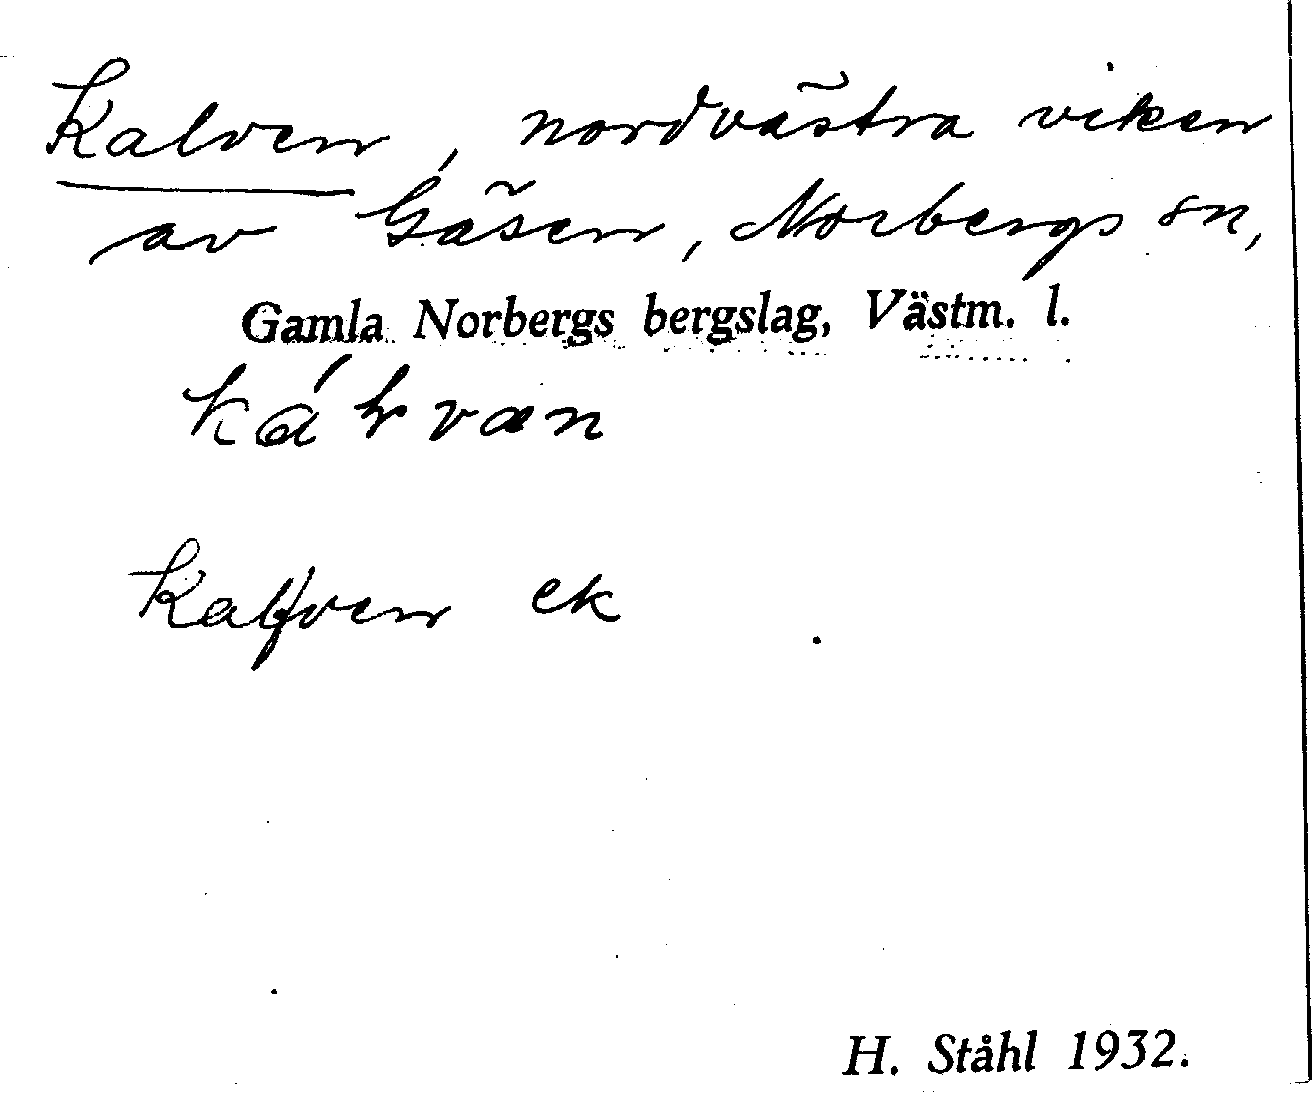 Kalven, nordvästra viken
av Gäsen, Norbergs sn,
Gamla Norbergs bergslag, Västm. l.
kálvæn
Kalfven ek
H. Ståhl 1932.